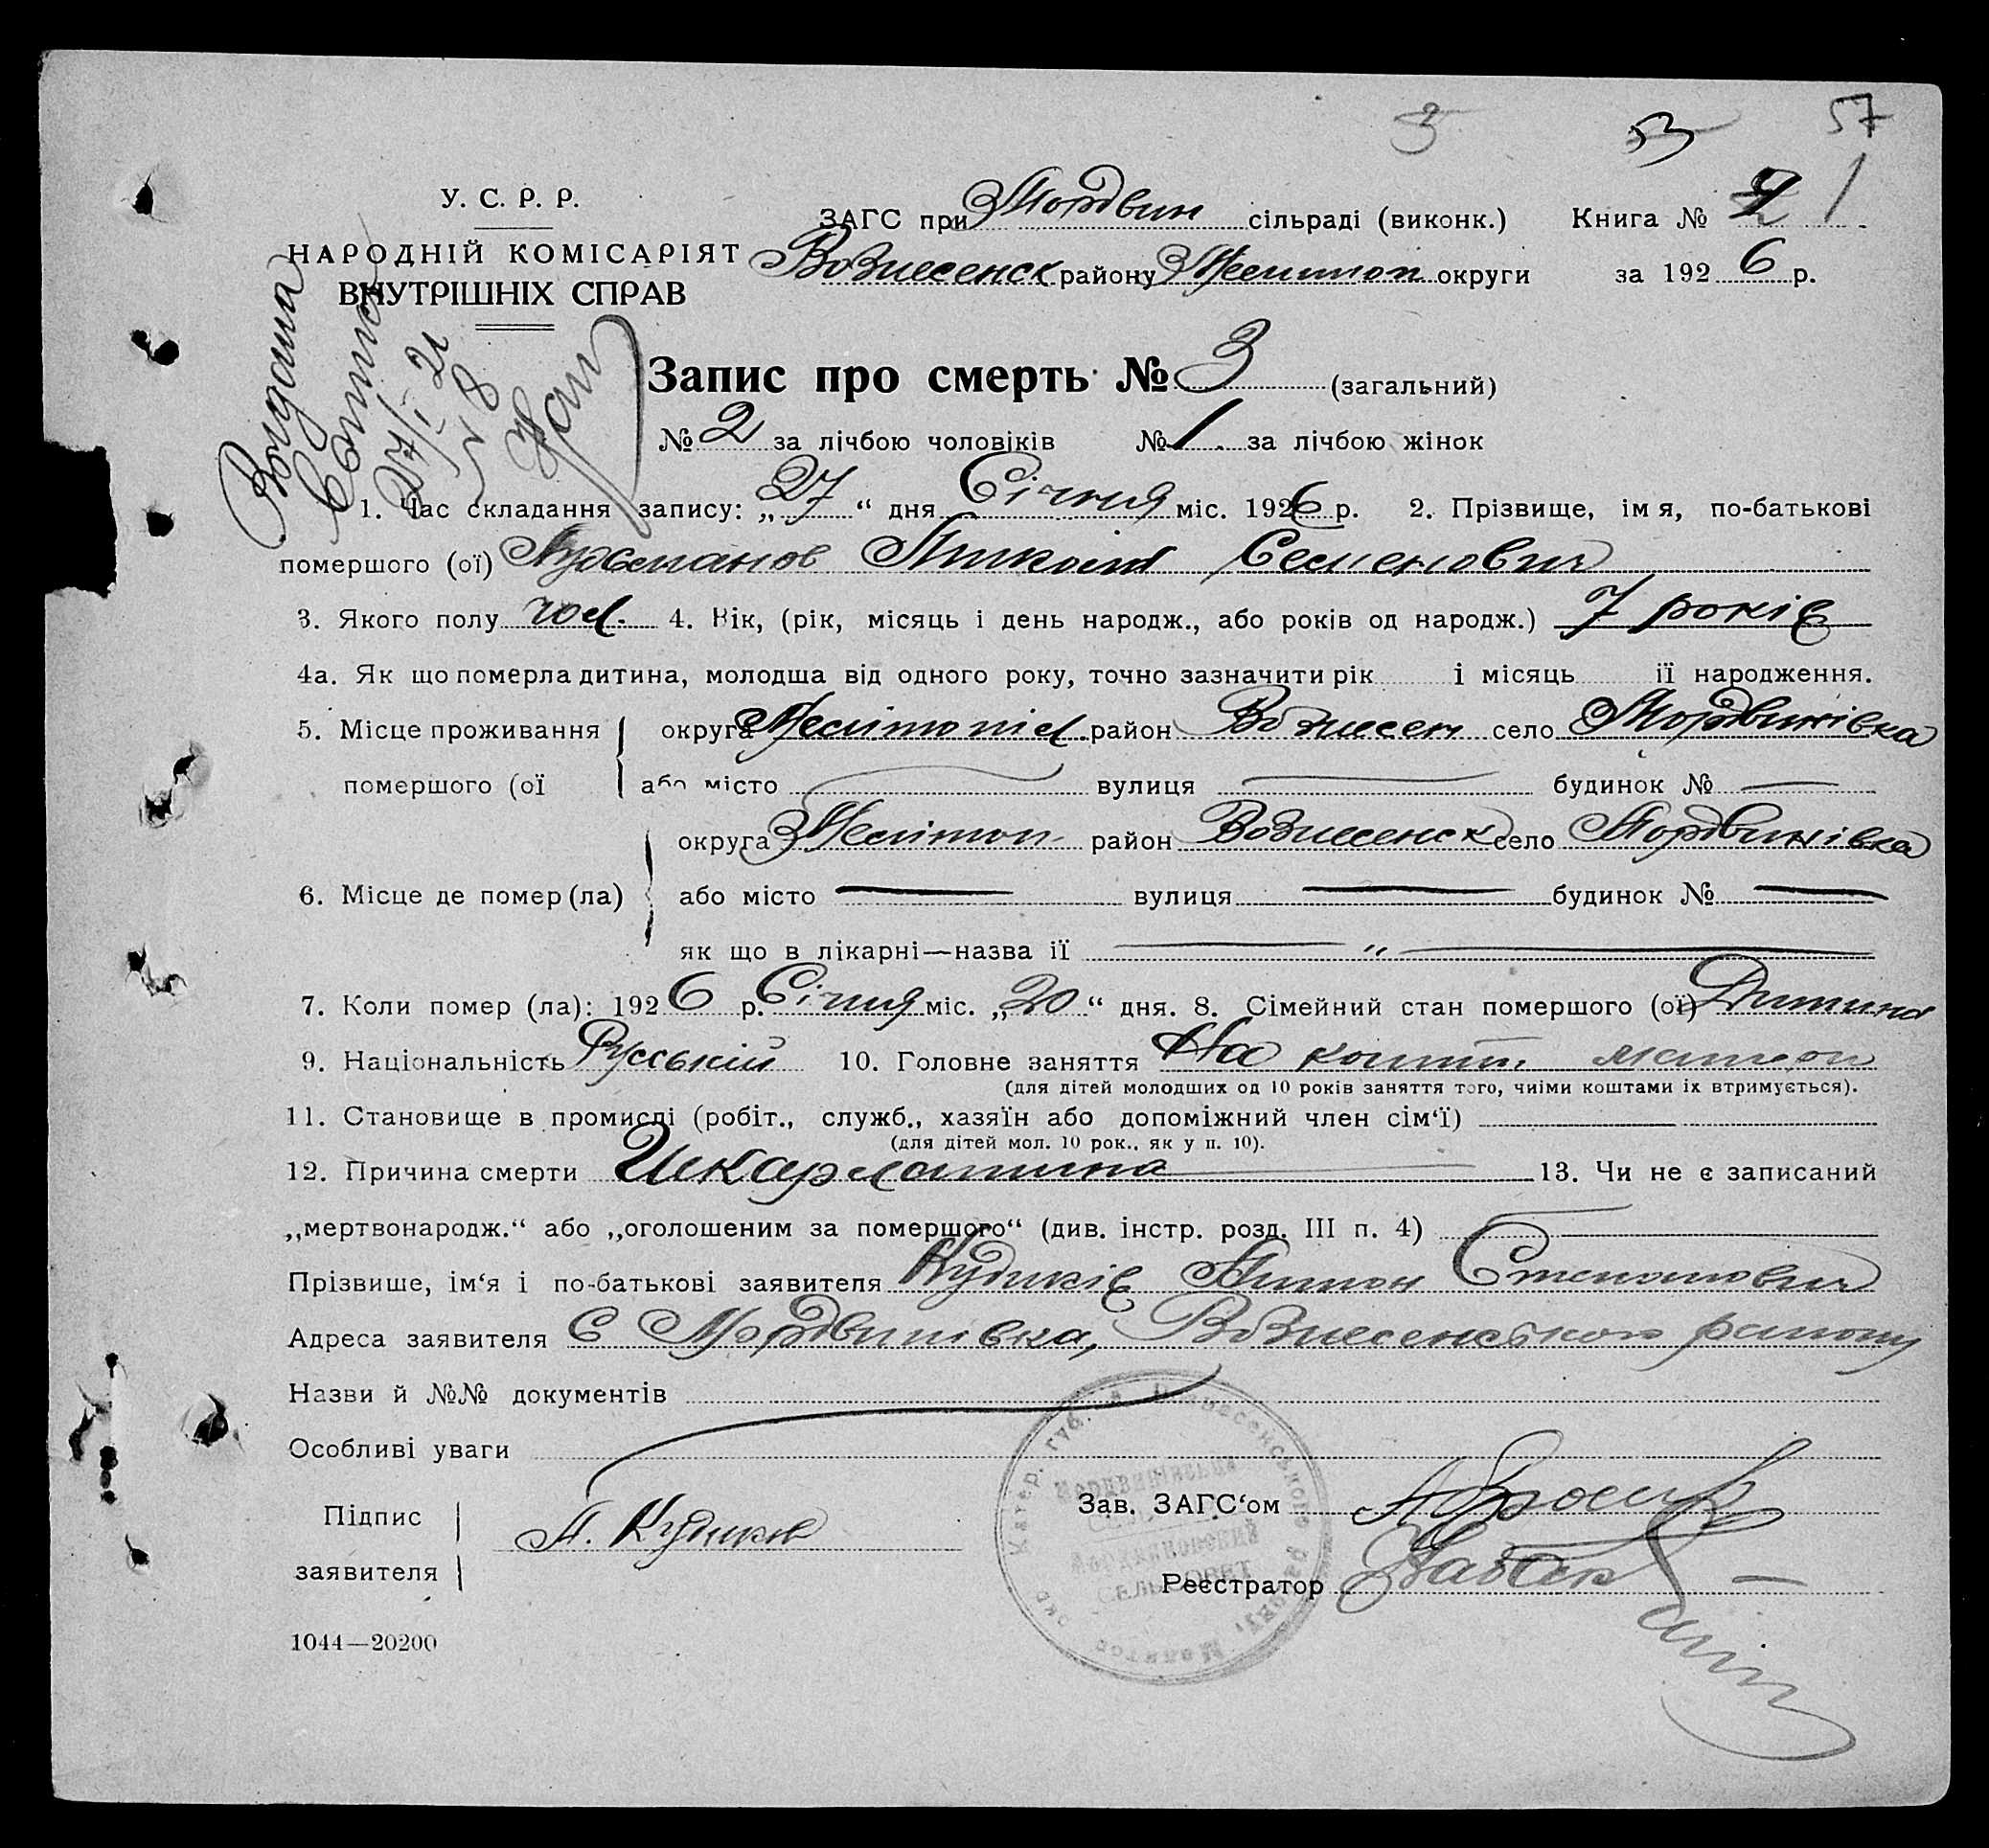 57
53
3
У. С. Р. Р.
НАРОДНІЙ КОМІСАРІЯТ
ВНУТРІШНІХ СПРАВ
ЗАГС при Мордвин сільраді (виконк.) Книга № 1
Вознесенск району Мелитоп округи за 1926 р.
Запис про смерть № 3 (загальний)
№ 2 за лічбою чоловіків № 1 за лічбою жінок
1. Час складання запису: „27“ дня Січня міс. 1926 р. 2. Прізвище, імя, по-батькові
помершого (ої) Миколай Семенович
3. Якого полу чол. 4. Вік, (рік, місяць і день народж., або років од народж.) 7 років
4а. Як що померла дитина, молодша від одного року, точно зазначити рік і місяць ії народження.
5. Місце проживання округа Мелітопіл. район Вознесен село Мордвинівка
помершого (ої або місто вулиця будинок № —
округа Мелітоп. район Вознесенск село Мордвинівка
6. Місце де помер (ла) або місто — вулиця — будинок № —
як що в лікарні—назва ії — „ —
7. Коли помер (ла): 1926 р. Січня міс. „20“ дня. 8. Сімейний стан помершого (ої) Дитина
9. Національність Руський 10. Головне заняття На кошти матери
(для дітей молодших од 10 років заняття того, чиїми коштами їх втримується).
11. Становище в промислі (робіт., служб., хазяїн або допоміжний член сім‘ї)
(для дітей мол. 10 рок., як у п. 10).
12. Причина смерти Шкарлатина 13. Чи не є записаний
„мертвонародж.“ або „оголошеним за помершого“ (див. інстр. розд. III п. 4)
Прізвише, ім‘я і по-батькові заявителя Антон Степанович
Адреса заявителя С Мордвинівка, Вознесенського району
Назви й №№ документів
Особливі уваги
Підпис
заявителя А.
Зав. ЗАГС‘ом
Реєстратор
1044—20200